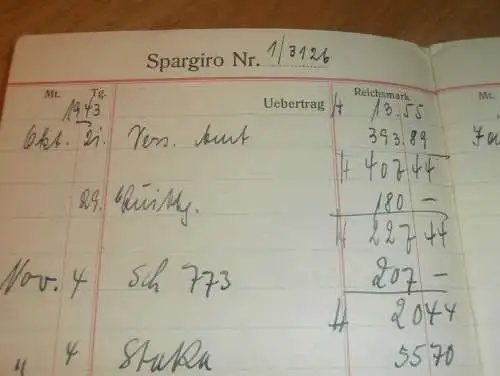 Spargiro Nr. 1/3126
Mt. Tg. Reichsmark Mt.
1943 Uebertrag H 13.55
Okt. 21. Vers. Amt 393.89
H 407 44
29. 180 –
H 227 44
Nov. 4 Sch 773 207 –
H 20 44
" 4 StaKa 55 70